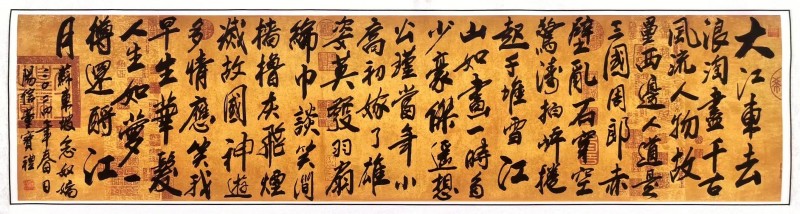 大江東去
浪淘盡千古
風流人物故
壘西邊人道是
三國周郎赤
壁亂石穿空
驚濤拍岸捲
起千堆雪江
山如畫一時多
少豪傑遙想
公瑾當年小
喬初嫁了雄
姿英發羽扇
綸巾談笑間
檣櫓灰飛煙
滅故國神遊
多情應笑我
早生華髮
人生如夢一
樽還酹江
月
蘇東坡念奴嬌
年春日